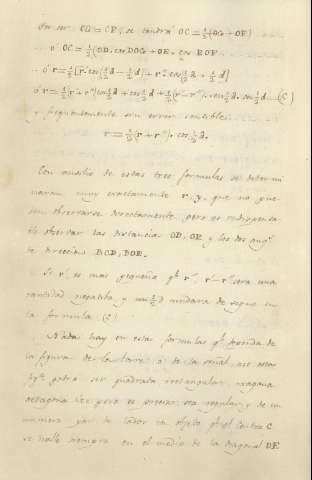 por ser CG = CF, se tendrá OC = ½(OG + OF)
ó OC = ½(OD. cos DOG + OE. cos EOF
ó r = ½[r'. cos(½A - ½d) + r''. cos(½A + ½d]
ó r = ½(r' + r'') cos½A + cos½d + ½(r' - r''). sen½A. sen½d ... (C)
y frequentemente sin error sensible
r = ½(r' + r''). cos½A.
Con auxilio de estas tres formulas se determi
naran muy exactamente r, y, que no pue
den observarse directamente pero es indispensa
ble observar las distancias OD, OE y los dos ang.s
de direccion BOD, BOE.
Si r' es mas pequeña q.e r'', r' - r'' sera una
cantidad negatita y sen½d mudara de signo en
la formula (2)
Nada hay en estas formulas q.e dependa de
la figura de la torre ó de la señal: asi estas
podra ser quadrata rectangular, exagona
octagona &c pero es preciso sea regular y de un
numero par de lados en objeto q.e el centro C
se halle siempre en el medio de la diagonal DE